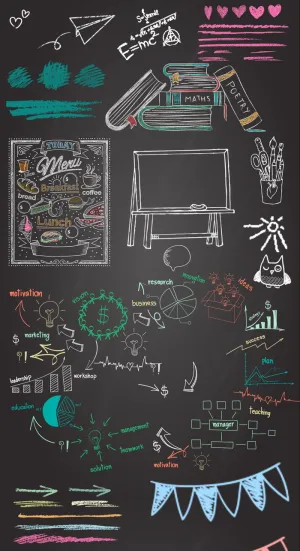 E=mc²
MATHS
POETRY
TODAY
Menu
Breakfast
bread
coffee
Lunch
research
ideas
motivation
business
vision
marketing
success
leadership
workshop
plan
education
teaching
management
manager
teamwork
solution
motivation